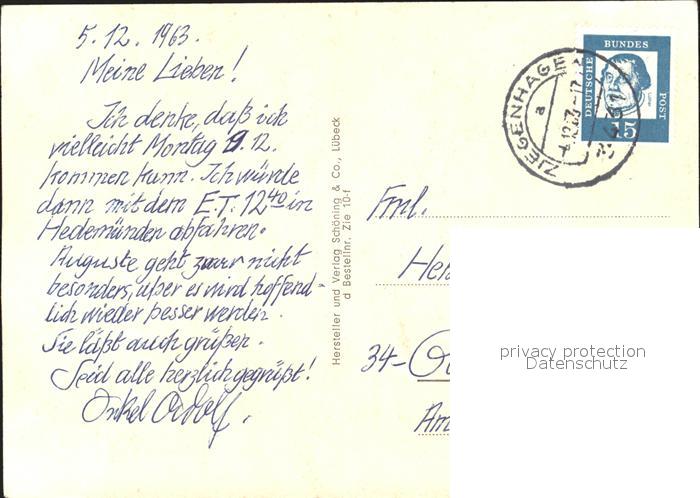 5.12.1963.
Meine Lieben!
Ich denke, daß ich
vielleicht Montag 9.12.
kommen kann. Ich würde
dann mit dem E.T. 12⁴⁰ in
Hedemünden abfahren.
Auguste geht zwar nicht
besonders, aber es wird hoffend-
lich wieder besser werden.
Sie läßt auch grüßen.
Seid alle herzlich gegrüßt!
Onkel Adolf.
Hersteller und Verlag Schöning & Co., Lübeck
d Bestellnr. Zie 10-f
ZIEGENHAGEN
a
DEUTSCHE
BUNDES
POST
15
Frnl.
34-
privacy protection
Datenschutz